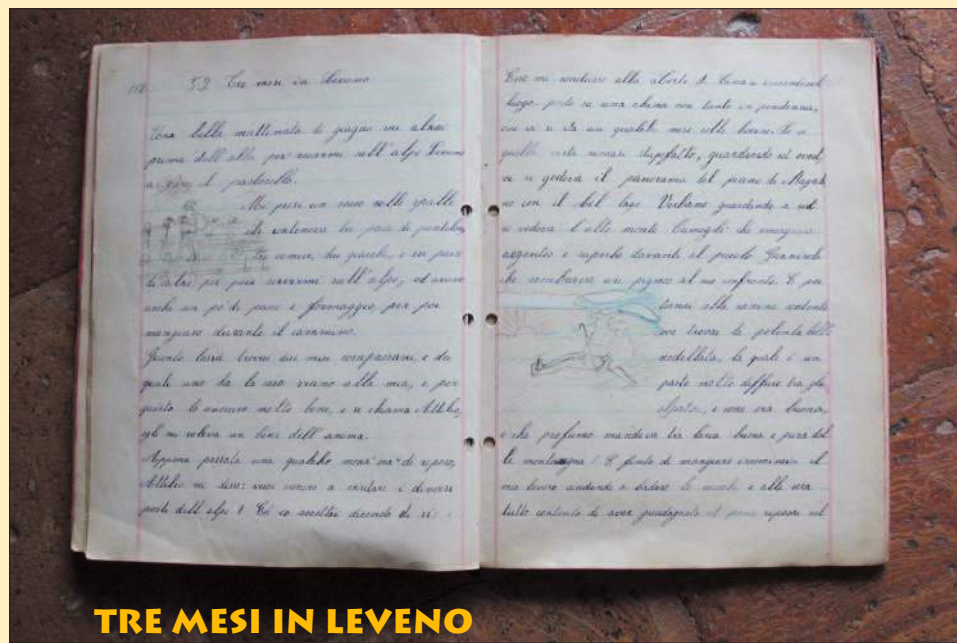 152 Tre mesi in Leveno
Una bella mattinata di giugno mi alzai
prima dell'alba per recarmi sull'alpe Leveno
a fare il pastorello.
Mi presi un sacco sulle spalle
che conteneva tre paia di pantaloni,
tre camice, due giacche, e un paio
di altri per poter servirmi sull'alpe, ed avevo
anche un po' di pane e formaggio per poter
mangiare durante il cammino.
Giunto lassù trovai due miei compaesani, e dei
quali uno da la casa vicino alla mia, e per
questo lo conosco molto bene, e si chiama Attilio,
egli mi voleva un bene dell'anima.
Appena passata una qualche mezz'ora di riposo,
Attilio mi disse: vuoi venire a visitare i diversi
posti dell'alpe? Ed io accettai dicendo di sì.
Esso mi condusse alla
luogo posto su una china non tanto in pendenza,
ove vi si sta un qualche mese colle bovine. Io a
quella vista rimasi stupefatto, guardando ad ovest
vi si godeva il panorama del piano di Magadi
no con il bel lago Verbano guardando a sud
si vedeva l'alto monte Camoghè che emergeva
argenteo e superbo davanti il piccolo
che sembrava un pigmeo al suo confronto. E poi
tornai alla cascina contento
ove trovai la polenta bella
rodellata, la quale è un
pasto molto diffuso tra gli
alpatori, e come era buona,
e che profumo mandava tra l'aria buona e pura del
la montagna! E finito di mangiare incominciai il
mio lavoro andando a badare le mucche e alla sera
tutto contento di aver guadagnato il pane riposai sul
TRE MESI IN LEVENO